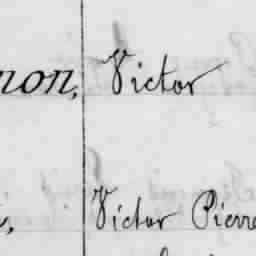 non, Victor
, Victor Pierre